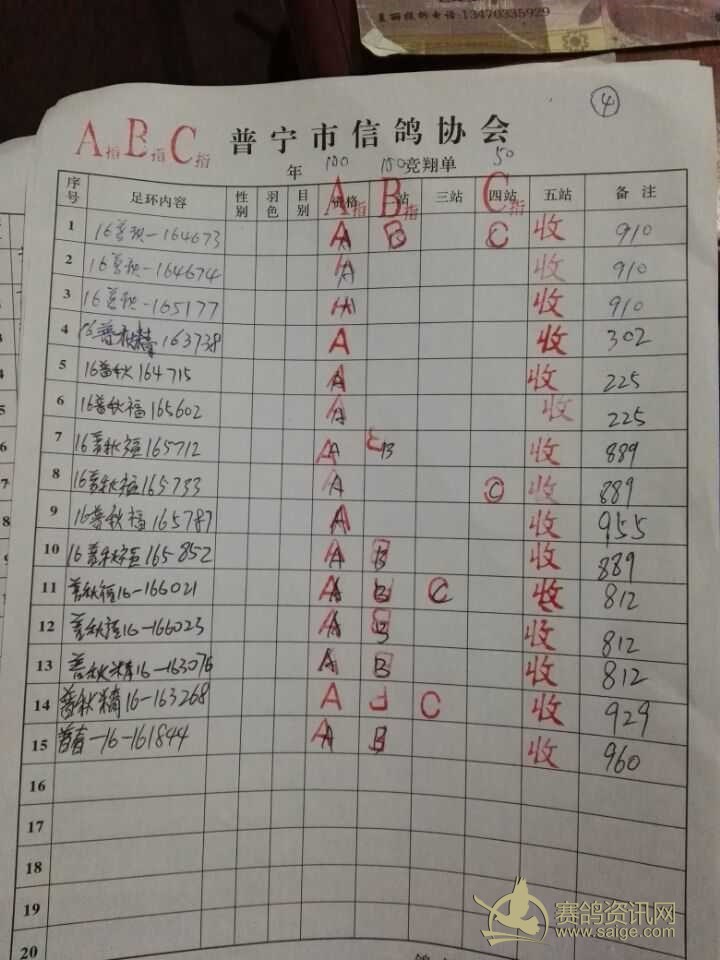 美丽 电话:13470335929
4
A指 B指 C指 普宁市信鸽协会
年 100 150 竞翔单 50
序号 足环内容 性别 羽色 目别 价格 A指 B指 站 三站 C指 四站 五站 备注
1 16普秋-164673 A B C 收 910
2 16普秋-164674 A 收 910
3 16普秋-165177 A 收 910
4 16普秋精163738 A 收 302
5 16普秋164715 A 收 225
6 16普秋福165602 A 收 225
7 16普秋福165712 A B 收 889
8 16普秋福165733 A C 收 889
9 16普秋福165787 A 收 955
10 16普秋福165852 A B 收 889
11 普秋福16-166021 A B C 收 812
12 普秋福16-166023 A B 收 812
13 普秋精16-163076 A B 收 812
14 普秋精16-163268 A C 收 929
15 普春-16-161844 A B 收 960
16
17
18
19
20
赛鸽资讯网
www.saige.com